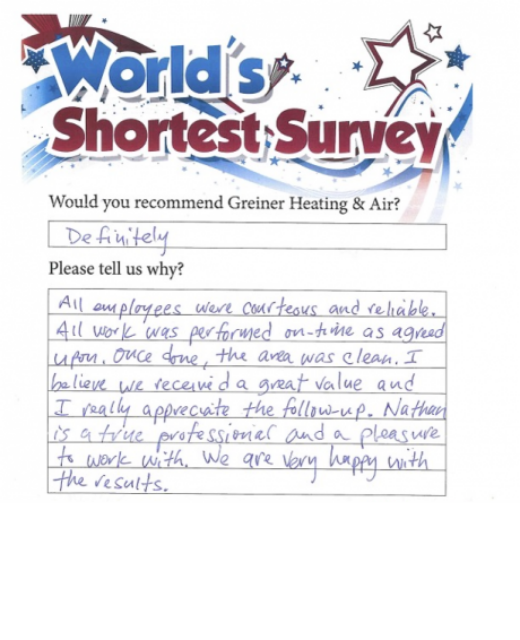 World's
Shortest Survey
Would you recommend Greiner Heating & Air?
Definitely
Please tell us why?
All employees were courteous and reliable.
All work was performed on-time as agreed
upon. Once done, the area was clean. I
believe we received a great value and
I really appreciate the follow-up. Nathan
is a true professional and a pleasure
to work with. We are very happy with
the results.